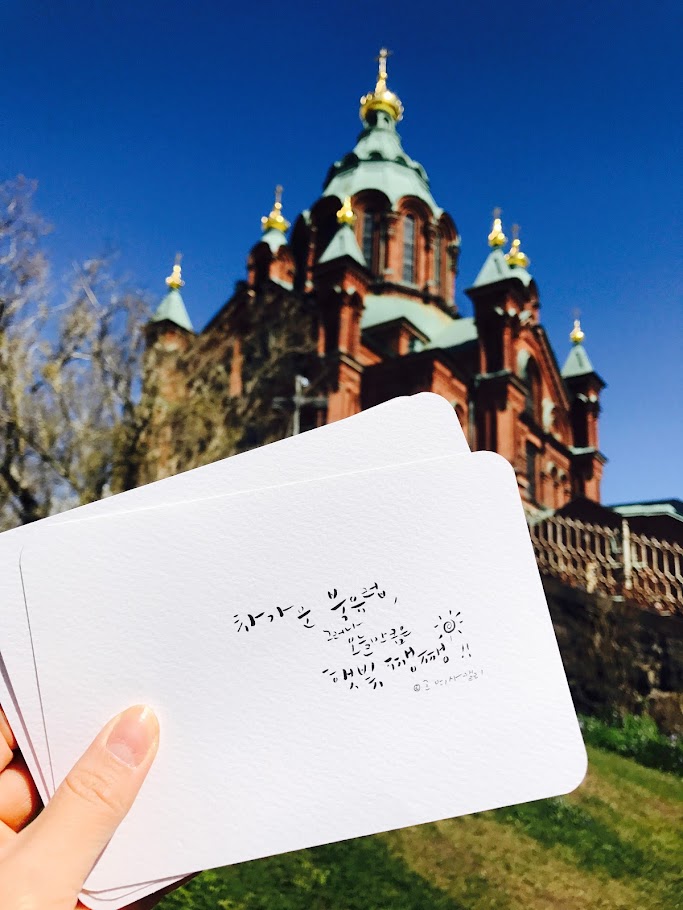 차가운 북유럽,
그러나
오늘만큼은
햇빛 쨍쨍!!